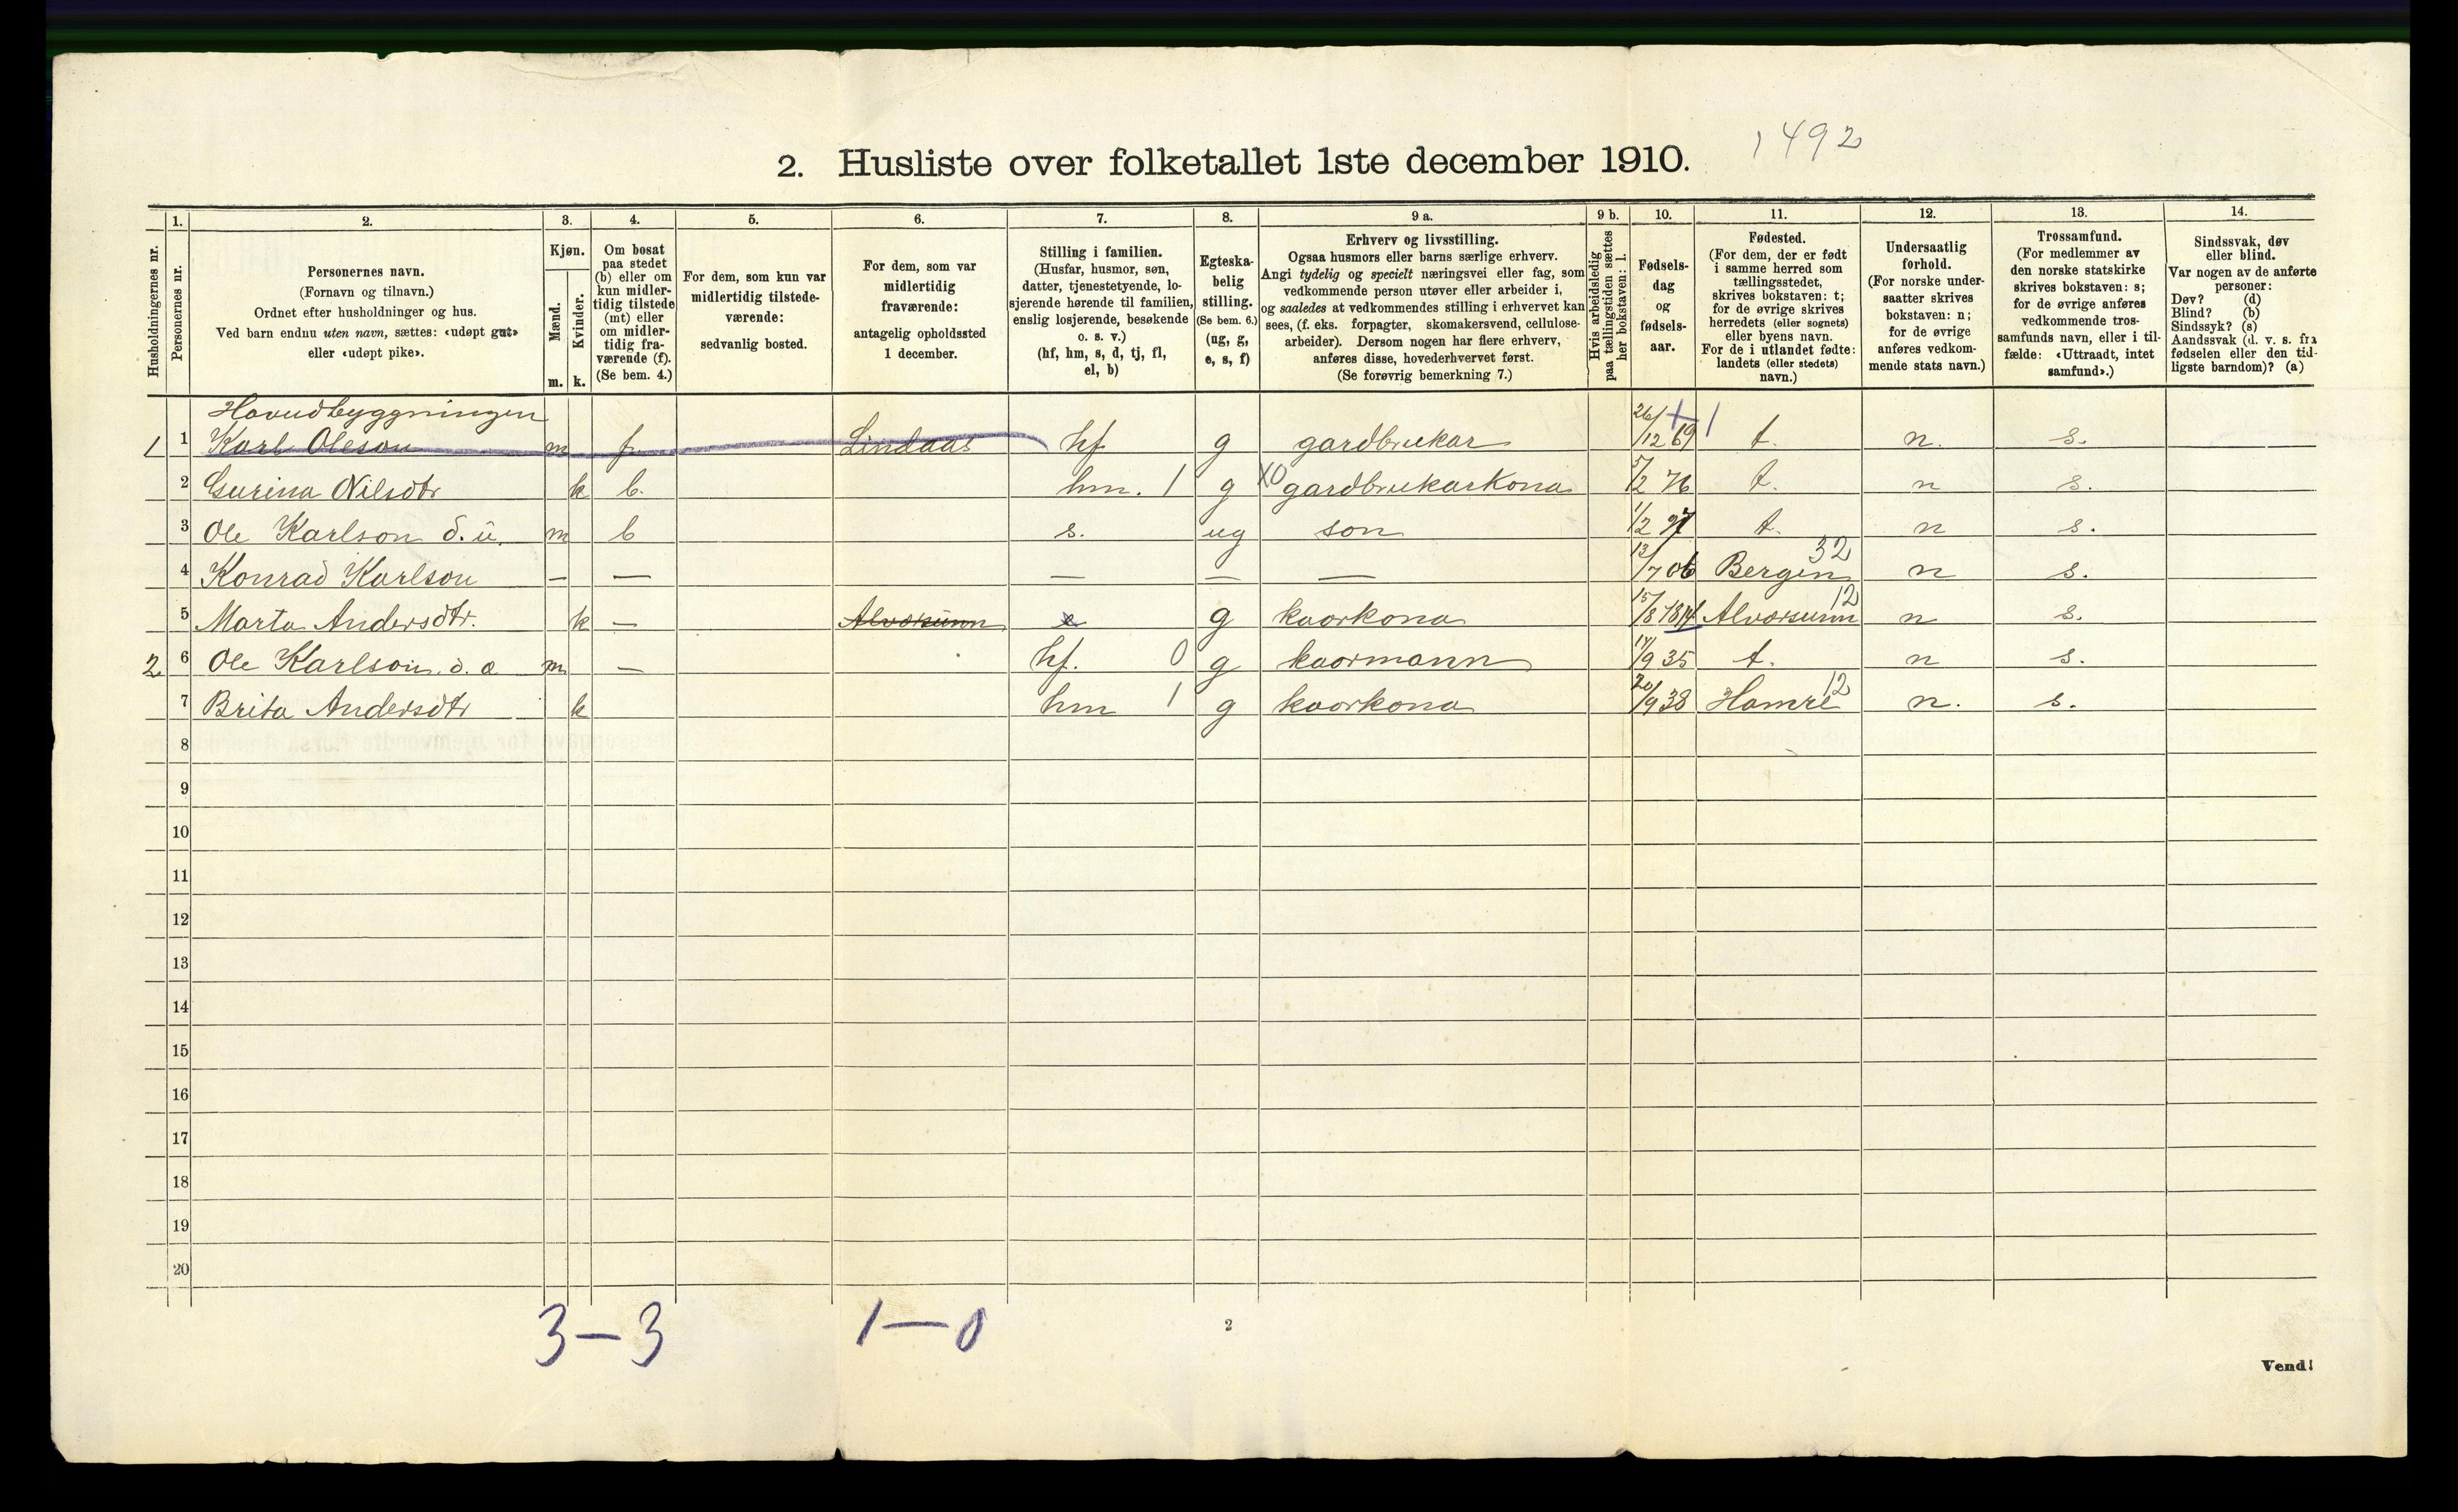 1492
2. Husliste over folketallet 1ste december 1910.
Husholdningernes nr.
1.
Personernes nr.
2.
Personernes navn.
(Fornavn og tilnavn.)
Ordnet efter husholdninger og hus.
Ved barn endnu uten navn, sættes: «udøpt gut»
eller «udøpt pike».
3.
Kjøn.
Mænd.
Kvinder.
m. k.
4.
Om bosat
paa stedet
(b) eller om
kun midler-
tidig tilstede
(mt) eller
om midler-
tidig fra-
værende (f).
(Se bem. 4.)
5.
For dem, som kun var
midlertidig tilstede-
værende:
sedvanlig bosted.
6.
For dem, som var
midlertidig
fraværende:
antagelig opholdssted
1 december.
7.
Stilling i familien.
(Husfar, husmor, søn,
datter, tjenestetyende, lo-
sjerende hørende til familien,
enslig losjerende, besøkende
o. s. v.)
(hf, hm, s, d, tj, fl,
el, b)
8.
Egteska-
belig
stilling.
(Se bem. 6.)
(ug, g,
e, s, f)
9 a.
Erhverv og livsstilling.
Ogsaa husmors eller barns særlige erhverv.
Angi tydelig og specielt næringsvei eller fag, som
vedkommende person utøver eller arbeider i,
og saaledes at vedkommendes stilling i erhvervet kan
sees, (f. eks. forpagter, skomakersvend, cellulose-
arbeider). Dersom nogen har flere erhverv,
anføres disse, hovederhvervet først.
(Se forøvrig bemerkning 7.)
9 b.
Hvis arbeidsledig
paa tællingstiden sættes
her bokstaven: l.
10.
Fødsels-
dag
og
fødsels-
aar.
11.
Fødested.
(For dem, der er født
i samme herred som
tællingsstedet,
skrives bokstaven: t;
for de øvrige skrives
herredets (eller sognets)
eller byens navn.
For de i utlandet fødte:
landets (eller stedets)
navn.)
12.
Undersaatlig
forhold.
(For norske under-
saatter skrives
bokstaven: n;
for de øvrige
anføres vedkom-
mende stats navn.)
13.
Trossamfund.
(For medlemmer av
den norske statskirke
skrives bokstaven: s;
for de øvrige anføres
vedkommende tros-
samfunds navn, eller i til-
fælde: «Uttraadt, intet
samfund».)
14.
Sindssvak, døv
eller blind.
Var nogen av de anførte
personer:
Døv? (d)
Blind? (b)
Sindssyk? (s)
Aandssvak (d. v. s. fra
fødselen eller den tid-
ligste barndom)? (a)
Hovudbyggningen
1 1 Karl Oleson m f Lindaas hf g gardbrukar 26/12 69 t. n. s.
2 Gurina Nilsdtr k b. hm. 1 g X0 gardbrukarkona 5/2 76 t. n s.
3 Ole Karlson d. u. m b s. ug son 1/2 97 t. n s.
4 Konrad Karlson — — — — — 13/7 06 Bergen 32 n s.
5 Marta Andersdtr. k — Alvorsunn g kaarkona 15/8 1814 Alvorsunn 12 n s.
2 6 Ole Karlson. d. e m — hf. 0 g kaarmann 17/9 35 t. n s.
7 Brita Andersdtr k hm 1 g kaarkona 20/9 38 Hamre 12 n. s.
8
9
10
11
12
13
14
15
16
17
18
19
20
3—3 1—0
2
Vend!